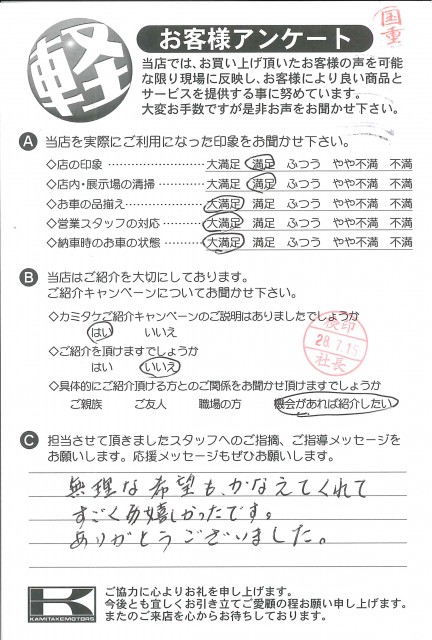 国重
軽
お客様アンケート
当店では、お買い上げ頂いたお客様の声を可能
な限り現場に反映し、お客様により良い商品と
サービスを提供する事に努めています。
大変お手数ですが是非お声をお聞かせ下さい。
A 当店を実際にご利用になった印象をお聞かせ下さい。
◇店の印象 ………… 大満足 満足 ふつう やや不満 不満
◇店内・展示場の清掃 ……… 大満足 満足 ふつう やや不満 不満
◇お車の品揃え ………… 大満足 満足 ふつう やや不満 不満
◇営業スタッフの対応 ……… 大満足 満足 ふつう やや不満 不満
◇納車時のお車の状態 ……… 大満足 満足 ふつう やや不満 不満
B 当店はご紹介を大切にしております。
ご紹介キャンペーンについてお聞かせ下さい。
◇カミタケご紹介キャンペーンのご説明はありましたでしょうか
はい いいえ
検印
28.7.15
社長
◇ご紹介を頂けますでしょうか
はい いいえ
◇具体的にご紹介頂ける方とのご関係をお聞かせ頂けますでしょうか
ご親族 ご友人 職場の方 機会があれば紹介したい
C 担当させて頂きましたスタッフへのご指摘、ご指導メッセージを
お願いします。応援メッセージもぜひお願いします。
無理な希望も、かなえてくれて
すごく嬉しかったです。
ありがとうございました。
K
KAMITAKEMOTORS
ご協力に心よりお礼を申し上げます。
今後とも宜しくお引き立てご愛顧の程お願い申し上げます。
またのご来店を心からお待ちしております。